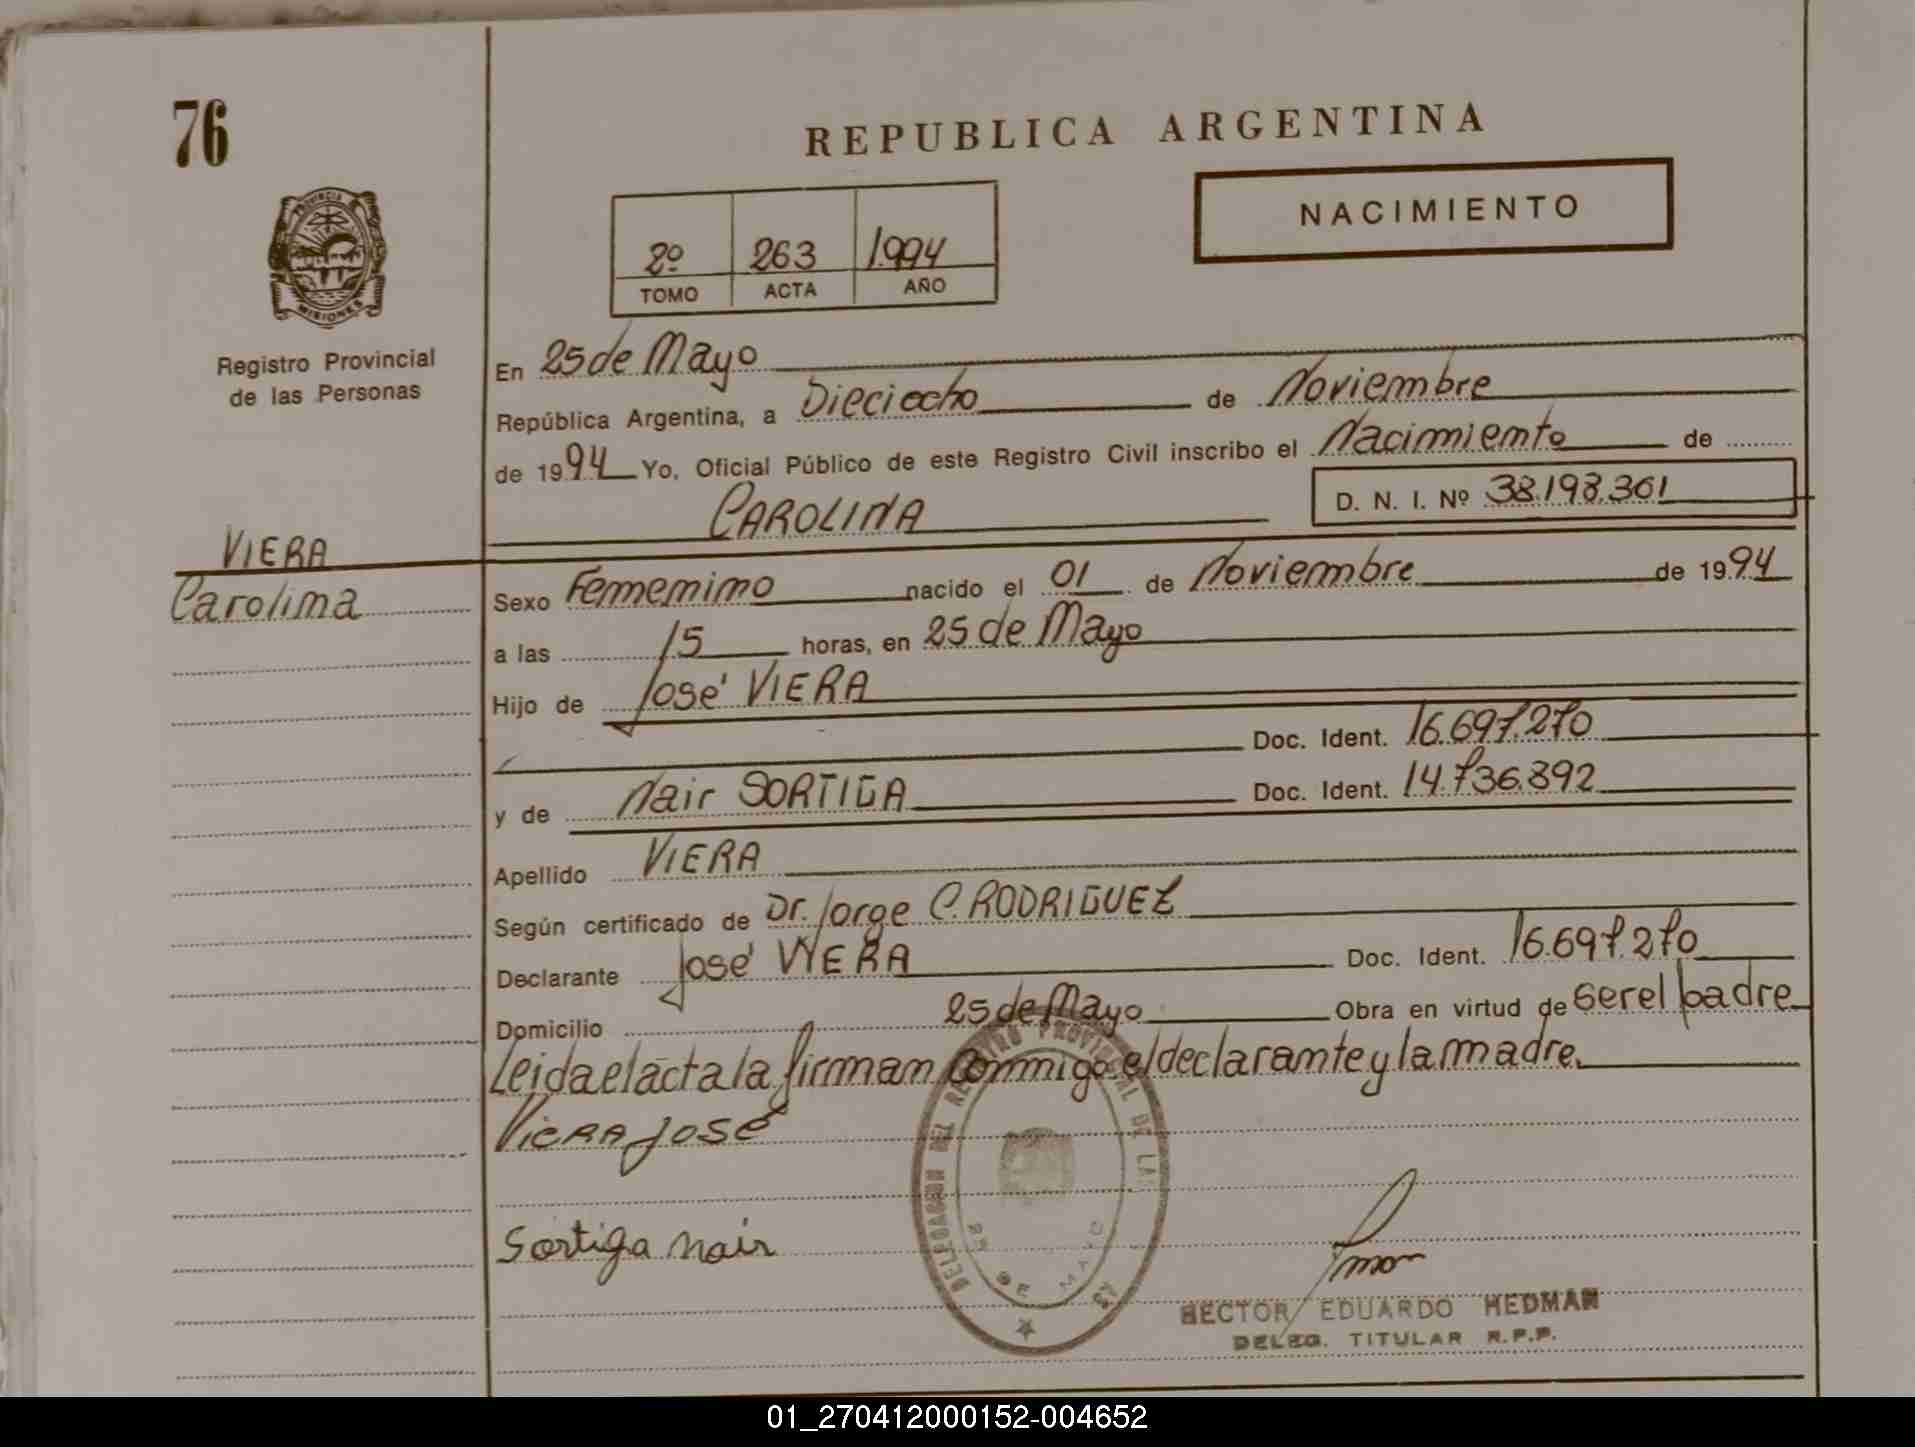 76
REPUBLICA ARGENTINA
NACIMIENTO
2º 263 1.994
TOMO ACTA AÑO
PROVINCIA
MISIONES
Registro Provincial
de las Personas
En 25 de Mayo
República Argentina, a Dieciocho de Noviembre
de 1994 Yo, Oficial Público de este Registro Civil inscribo el Nacimiento de
CAROLINA D. N. I. Nº 38.198.361
VIERA
Carolina
Sexo Femenino nacido el 01 de Noviembre de 1994
a las 15 horas, en 25 de Mayo
Hijo de José VIERA
Doc. Ident. 16.697.270
y de Nair SORTIGA Doc. Ident. 14.736.892
Apellido VIERA
Según certificado de Dr. Jorge C. RODRIGUEZ
Declarante José VIERA Doc. Ident. 16.697.270
Domicilio 25 de Mayo Obra en virtud de ser el padre
Leida el acta la firman conmigo el declarante y la madre.
Viera José
Sortiga Nair
DELEGACION DEL REGISTRO PROVINCIAL DE LAS
25 DE MAYO
HECTOR EDUARDO HEDMAN
DELEG. TITULAR R.P.P.
01_270412000152-004652